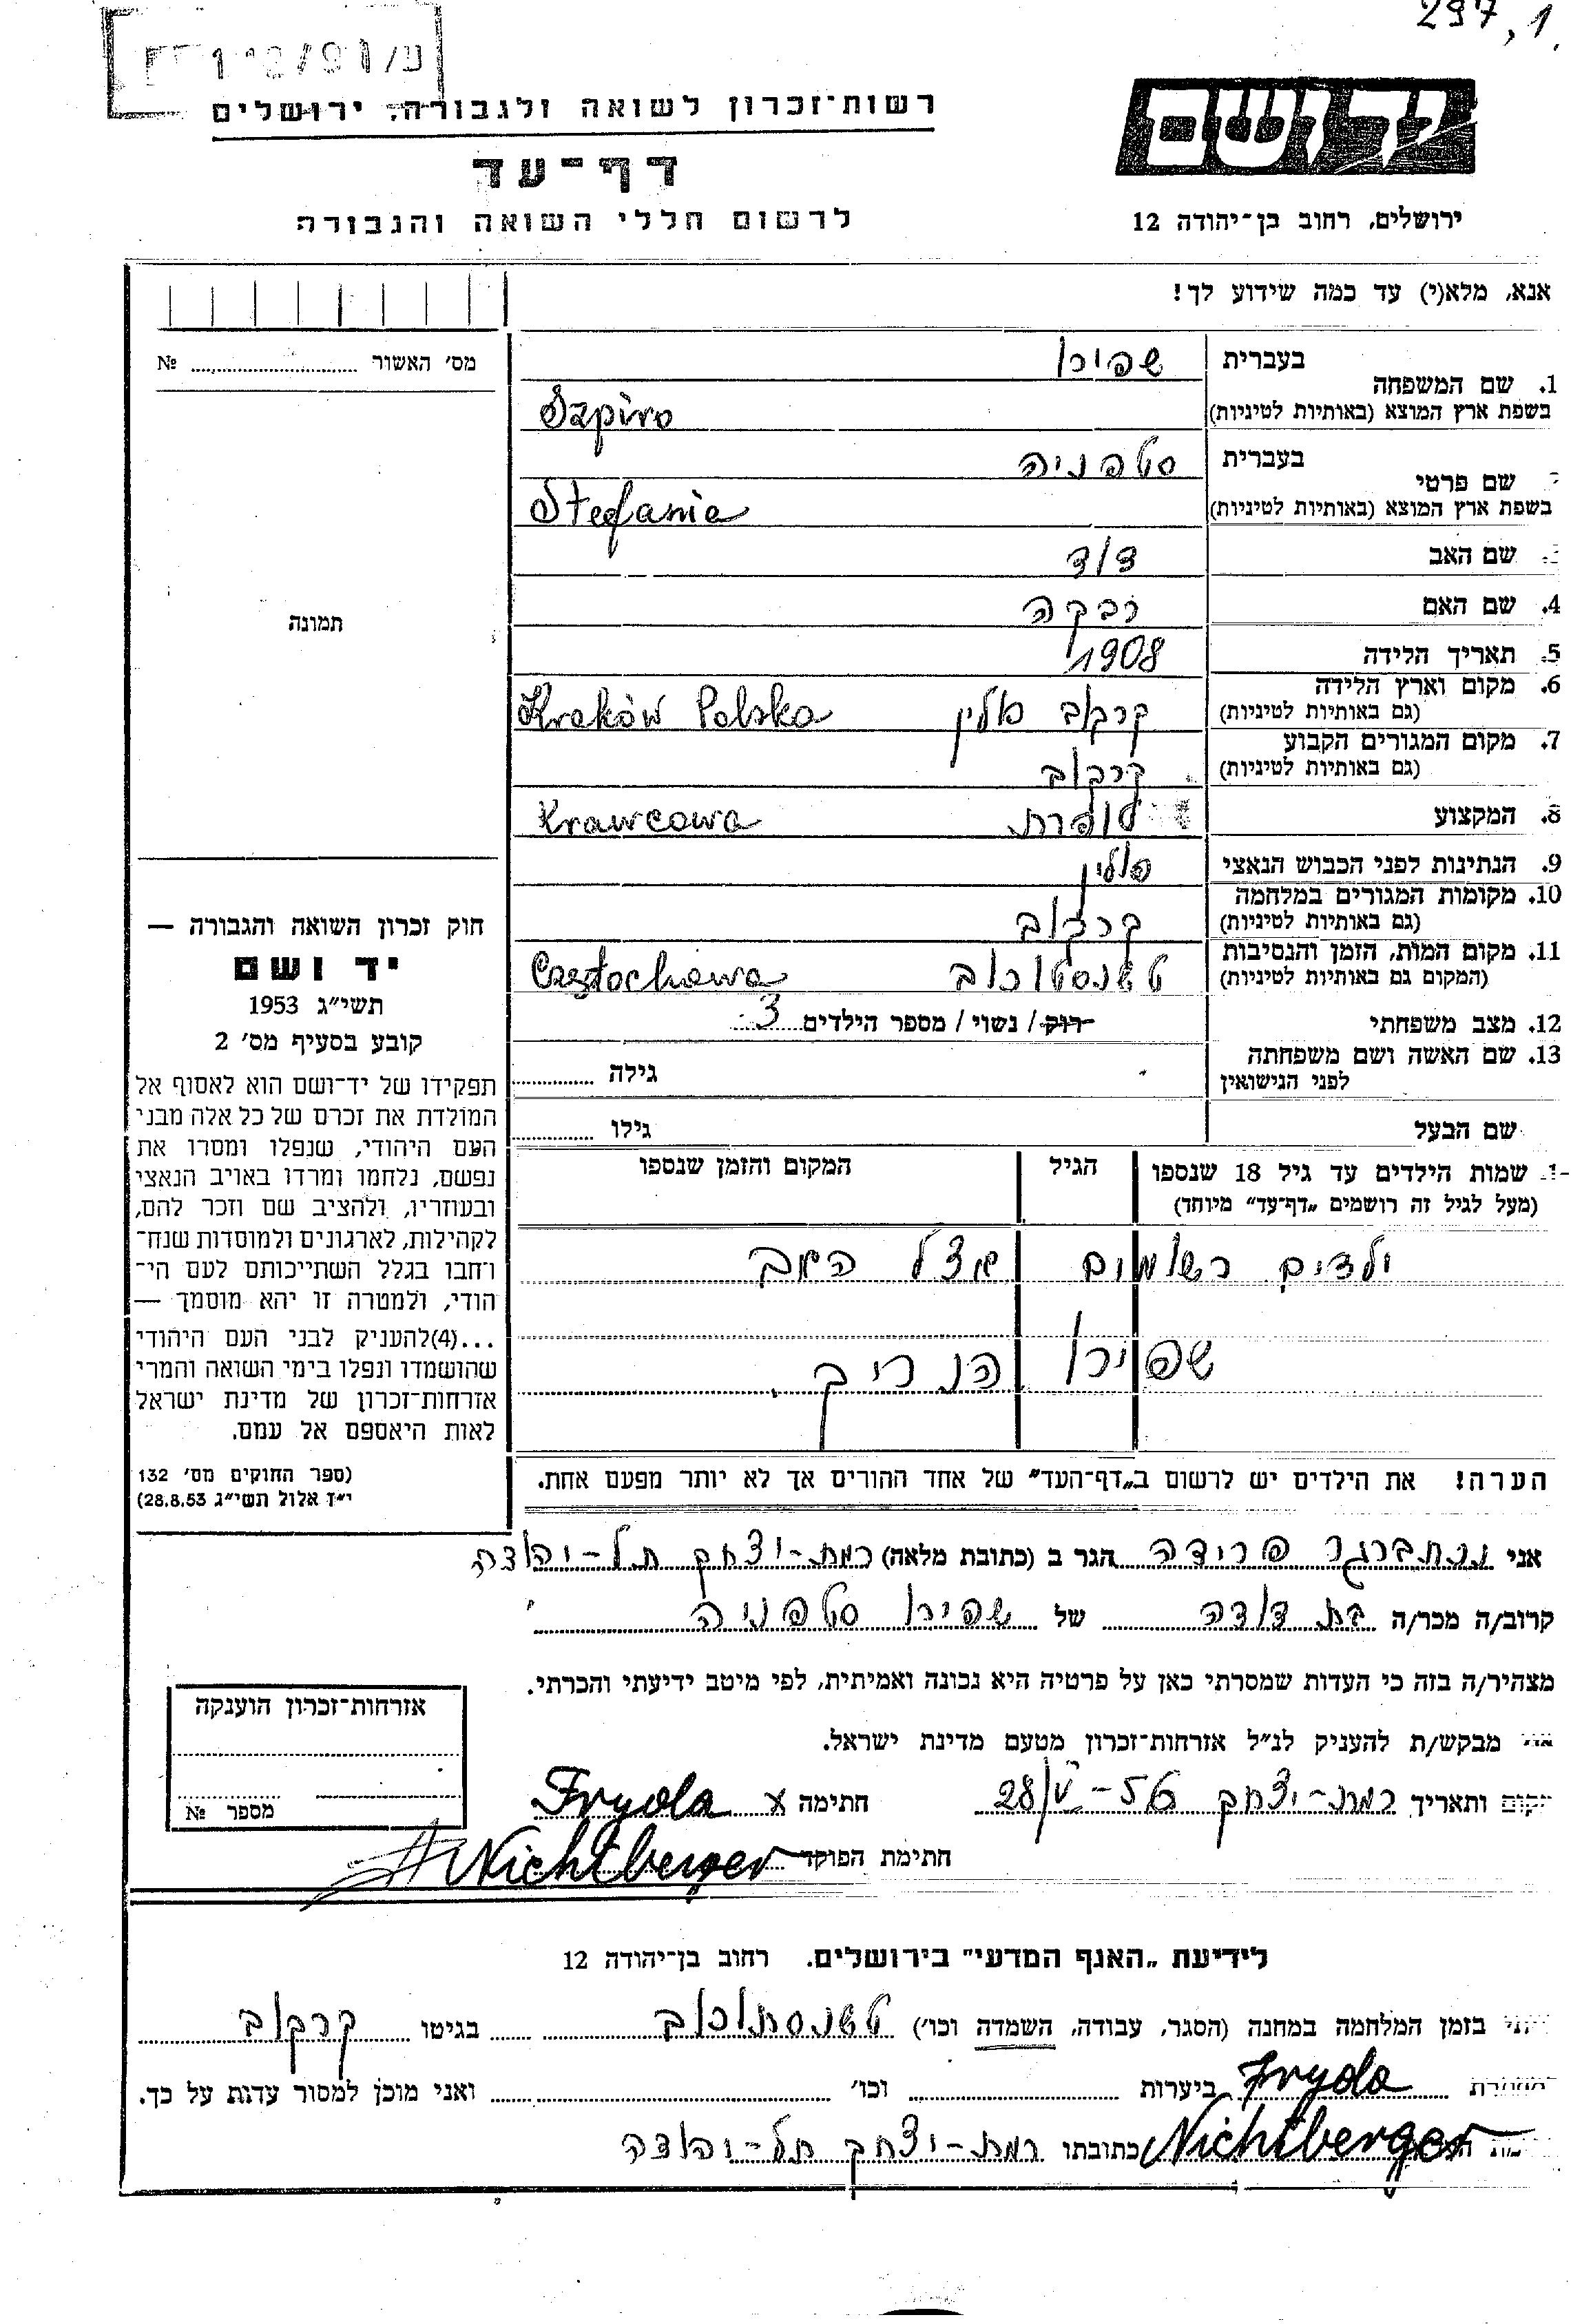 297,1
רשות־זכרון לשואה ולגבורה, ירושלים
יד ושם
דף־עד
לרשום חללי השואה והגבורה
ירושלים, רחוב בן־יהודה 12
אנא, מלא(י) עד כמה שידוע לך!
מס׳ האשור № 
תמונה
1. שם המשפחה
בעברית שפירו
בשפת ארץ המוצא (באותיות לטיניות) Szpiro
שם פרטי
בעברית סטפניה
בשפת ארץ המוצא (באותיות לטיניות) Stefania
שם האב דוד
4. שם האם רבקה
5. תאריך הלידה 1908
6. מקום וארץ הלידה (גם באותיות לטיניות) קרקוב פולין Kraków Polska
7. מקום המגורים הקבוע (גם באותיות לטיניות) קרקוב
8. המקצוע תופרת Krawcowa
9. הנתינות לפני הכבוש הנאצי פולין
10. מקומות המגורים במלחמה (גם באותיות לטיניות) קרקוב
11. מקום המות, הזמן והנסיבות (המקום גם באותיות לטיניות) טשנסטוכוב Częstochowa
12. מצב משפחתי רוק / נשוי / מספר הילדים 3
13. שם האשה ושם משפחתה לפני הנישואין גילה
שם הבעל גילו
שמות הילדים עד גיל 18 שנספו
(מעל לגיל זה רושמים „דף־עד״ מיוחד)
הגיל
המקום והזמן שנספו
ילדים רשומים אצל האב
שפירו הנריק
הערה! את הילדים יש לרשום ב„דף־העד״ של אחד ההורים אך לא יותר מפעם אחת.
חוק זכרון השואה והגבורה —
יד ושם
תשי״ג 1953
קובע בסעיף מס׳ 2
תפקידו של יד־ושם הוא לאסוף אל
המולדת את זכרם של כל אלה מבני
העם היהודי, שנפלו ומסרו את
נפשם, נלחמו ומרדו באויב הנאצי
ובעוזריו, ולהציב שם וזכר להם,
לקהילות, לארגונים ולמוסדות שנח־
רבו בגלל השתייכותם לעם הי־
הודי, ולמטרה זו יהא מוסמך —
...(4)להעניק לבני העם היהודי
שהושמדו ונפלו בימי השואה והמרי
אזרחות־זכרון של מדינת ישראל
לאות היאספם אל עמם.
(ספר החוקים מס׳ 132
י״ז אלול תשי״ג 28.8.53)
אני נכטברגר פרידה הגר ב (כתובת מלאה) רמת-יצחק תל-יהודה
קרוב/ה מכר/ה בת דודה של שפירו סטפניה
מצהיר/ה בזה כי העדות שמסרתי כאן על פרטיה היא נכונה ואמיתית, לפי מיטב ידיעתי והכרתי.
מבקש/ת להעניק לנ״ל אזרחות־זכרון מטעם מדינת ישראל.
ותאריך רמת-יצחק 28/V-56 חתימה x Fryda
חתימת הפוקד Nichtberger
אזרחות־זכרון הוענקה
מספר №
לידיעת „האגף המדעי״ בירושלים. רחוב בן־יהודה 12
בזמן המלחמה במחנה (הסגר, עבודה, השמדה וכו׳) טשנסתוכוב בגיטו קרקוב
ביערות וכו׳ ואני מוכן למסור עדות על כך.
Fryda
Nichtberger כתובתו רמת-יצחק תל-יהודה